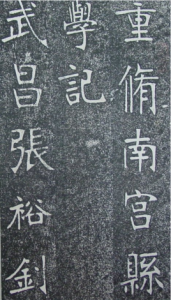 重脩南宫縣
學記
武昌張裕釗